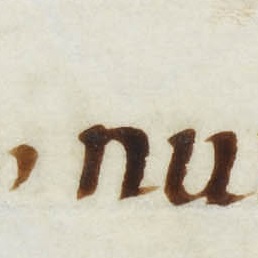 , nu